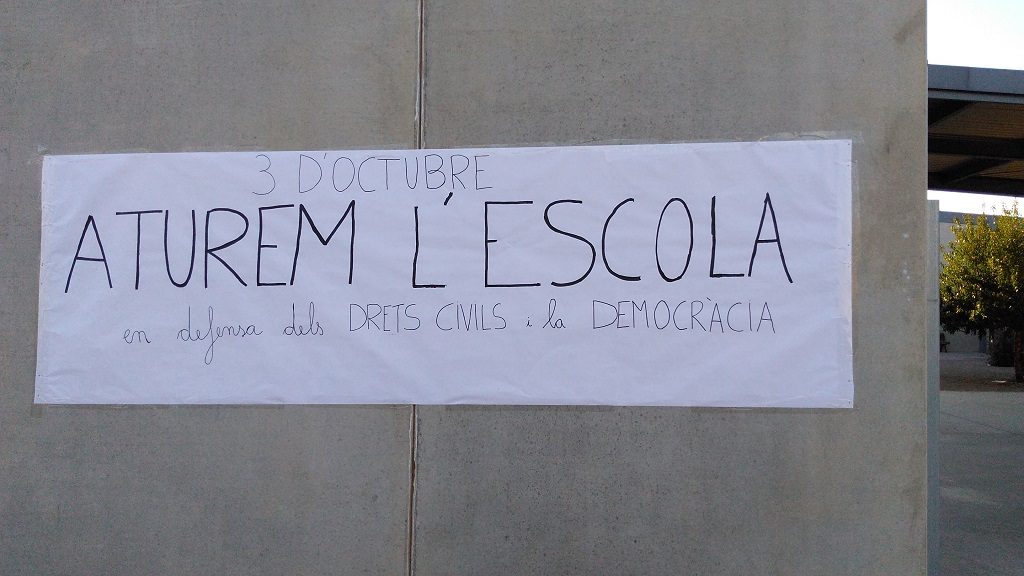 3 D'OCTUBRE
ATUREM L'ESCOLA
en defensa dels DRETS CIVILS i la DEMOCRÀCIA